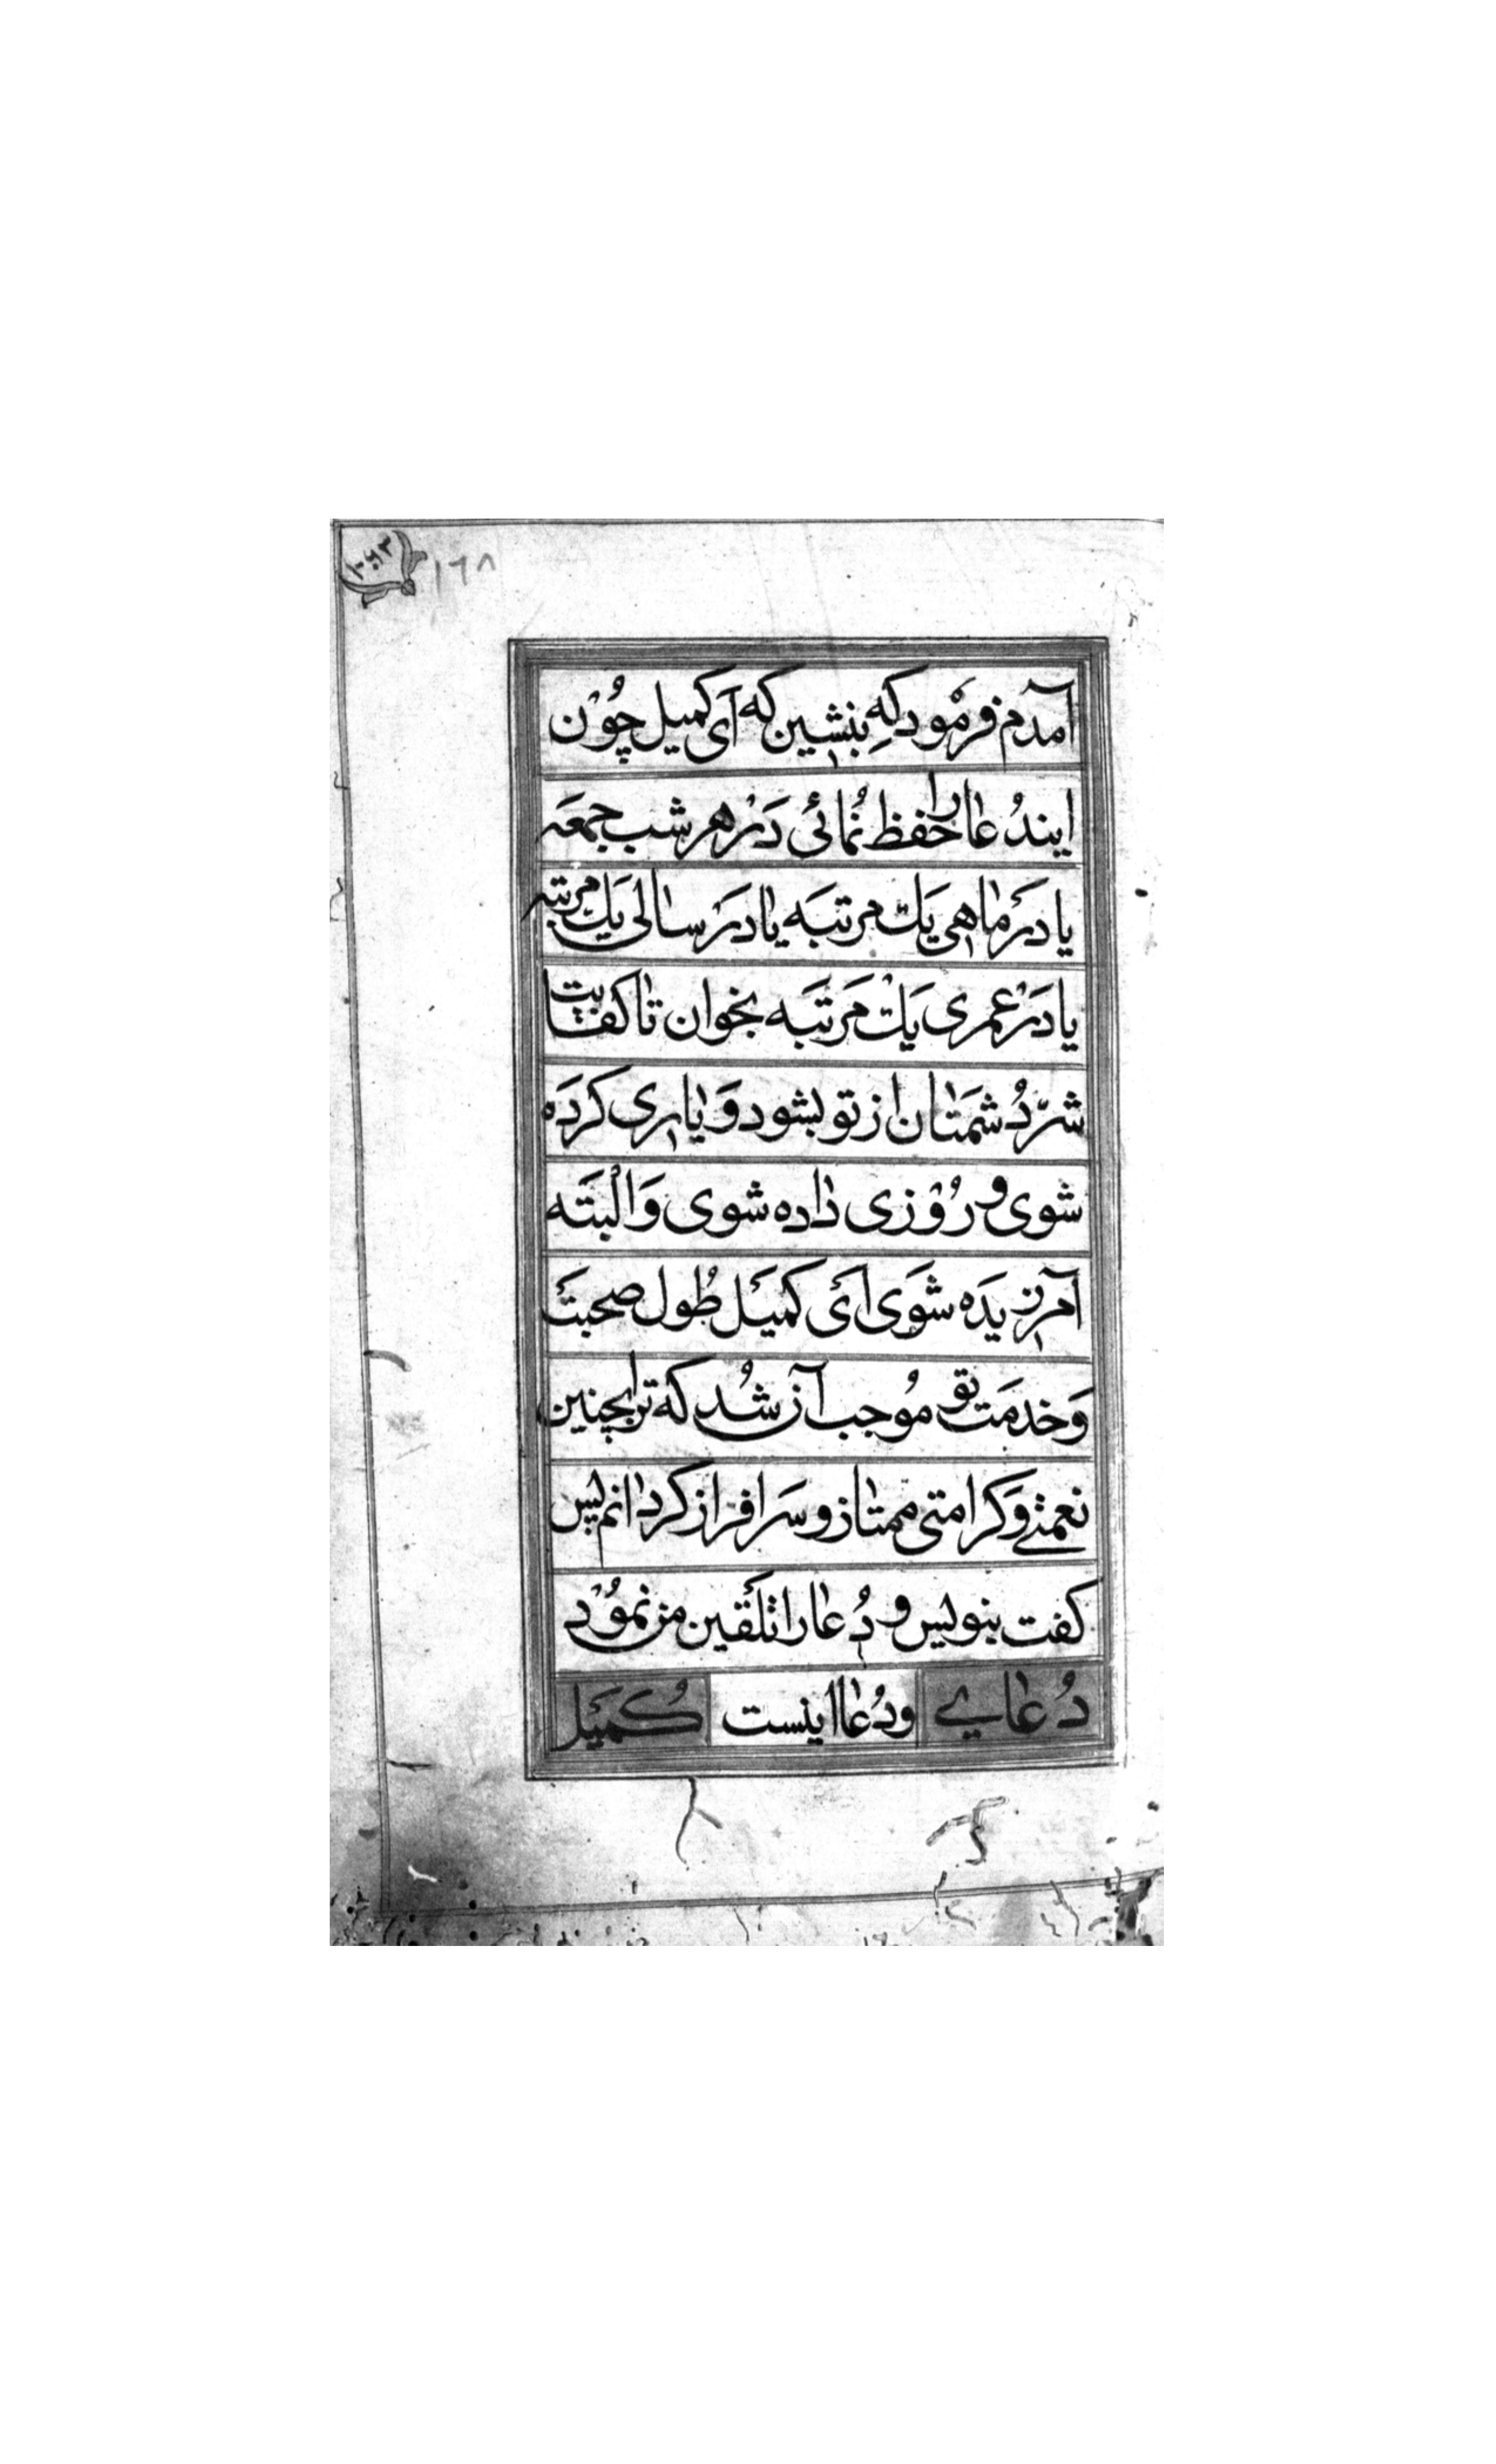 ۱۶۸
آمدم فرمْود کهِ بنشین که اَی کمیل چُوْن
ایندُعا را حفظ نُمائی دَرْ هر شب جمعَه
یا دَرْ ماهی یَك مرتبَه یا دَرْ سالی یَك مرتبه
یا دَرْ عمری یَكْ مَرتَبَه بخوان تا کفایت
شرّ دُشمَنان از تو بشود وَ یاری کردَه
شوی و رُوْزی داده شوی وَالْبتَه
آمرزیدَه شَوَی اَیْ کمیَل طُول صحبتَ
وَ خدمَت تو مُوجب آن شُد که ترا بچنین
نعمتے وَ کرامتی ممتاز و سَرافراز کردانم پس
کفت بنویس و دُعا را تلَقین من نمُوْد
دُعایے ودُعا اینست کُمیَل